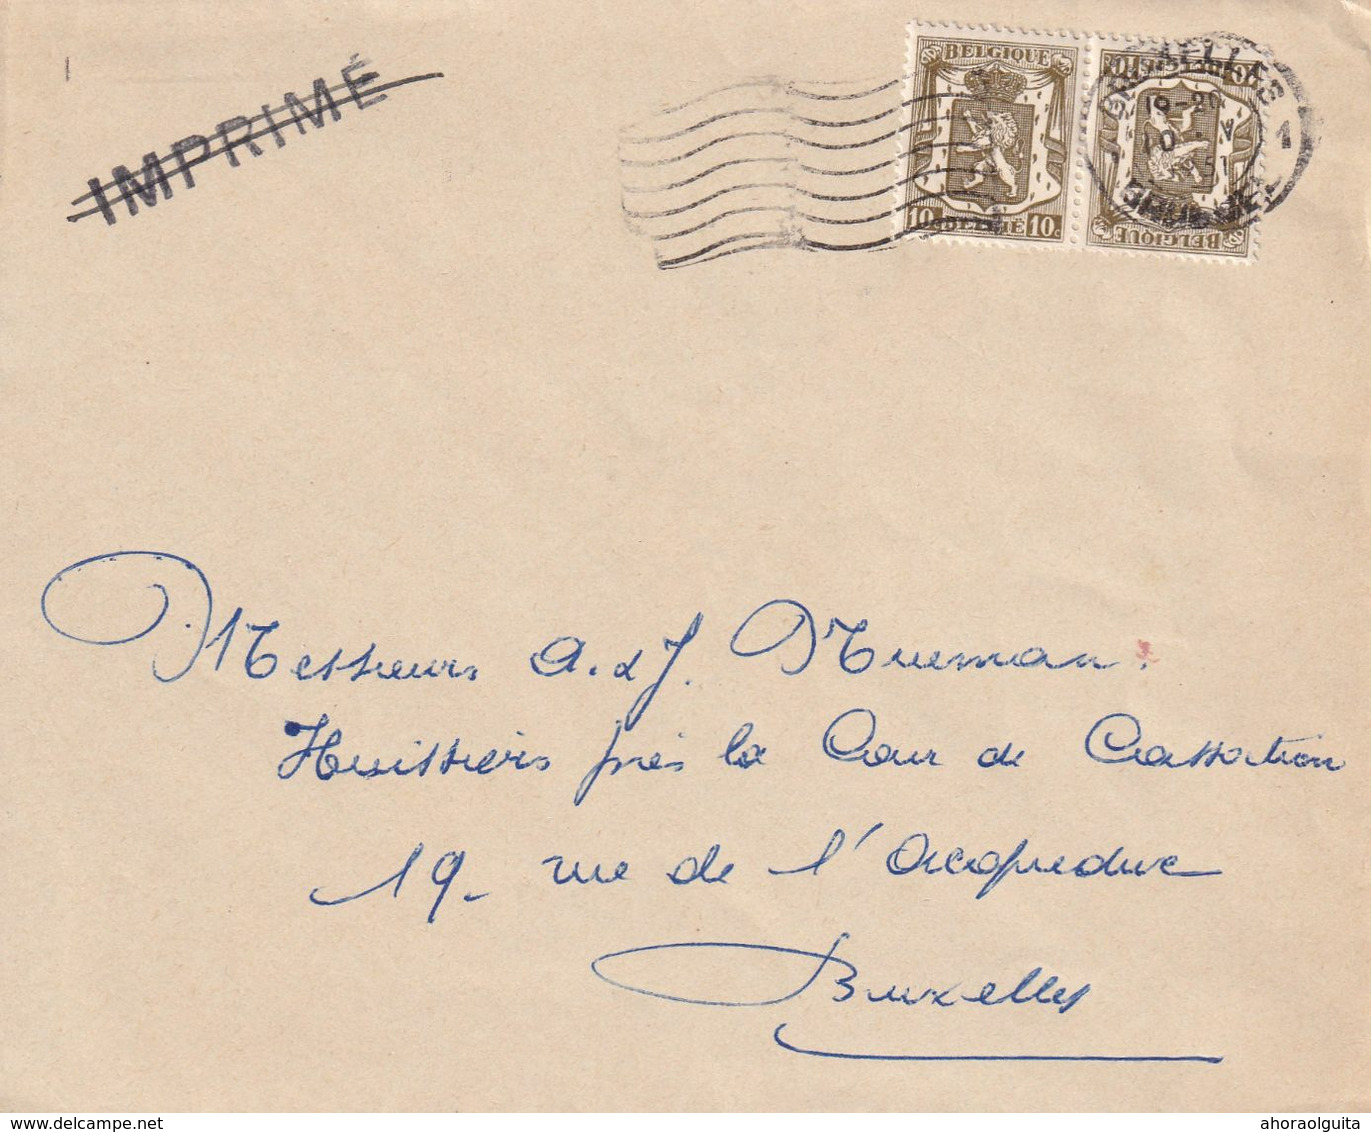 IMPRIMÉ
BELGIQUE
10 BELGIË 10c
BELGIQUE
BRUXELLES 1
19-20
10 V
1951
BRUSSEL
Messieurs A. & J. Mueman.
Huissiers près la Cour de Cassation
19- rue de l'Acqueduc
Bruxelles
www.delcampe.net
ahoraolguita